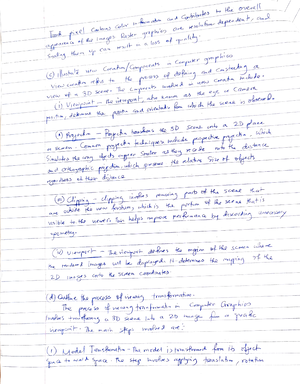 Each pixel contains color information and contributes to the overall
appearance of the image. Raster graphics are resolution dependent, and
scaling them up can result in a loss of quality.
(c) illustrate view Creation/Components in Computer graphics
View creation refers to the process of defining and constructing a
view of a 3D scene. The components involved in view creation include:
(i) Viewpoint - The viewpoint, also known as the eye or Camera
position, determines the position and orientation from which the scene is observed.
(ii) Projection - Projection transforms the 3D scene onto a 2D plane
or screen. Common projection techniques include perspective projection, which
simulates the way objects appear smaller as they recede into the distance
and orthographic projection, which preserves the relative size of objects
regardless of their distance.
(iii) Clipping - Clipping involves removing parts of the scene that
are outside the view frustum, which is the portion of the scene that is
visible to the viewer. This helps improve performance by discarding unnecessary
geometry.
(iv) Viewport - The viewport defines the region of the screen where
the rendered images will be displayed. It determines the mapping of the
2D images onto the screen coordinates.
(d) Outline the process of viewing transformation.
The process of viewing transformation in Computer Graphics
involves transforming a 3D scene into a 2D image for a specific
viewpoint. The main steps involved are:
(1) Model Transformation - The model is transformed from its object
space to world space. This step involves applying translation, rotation